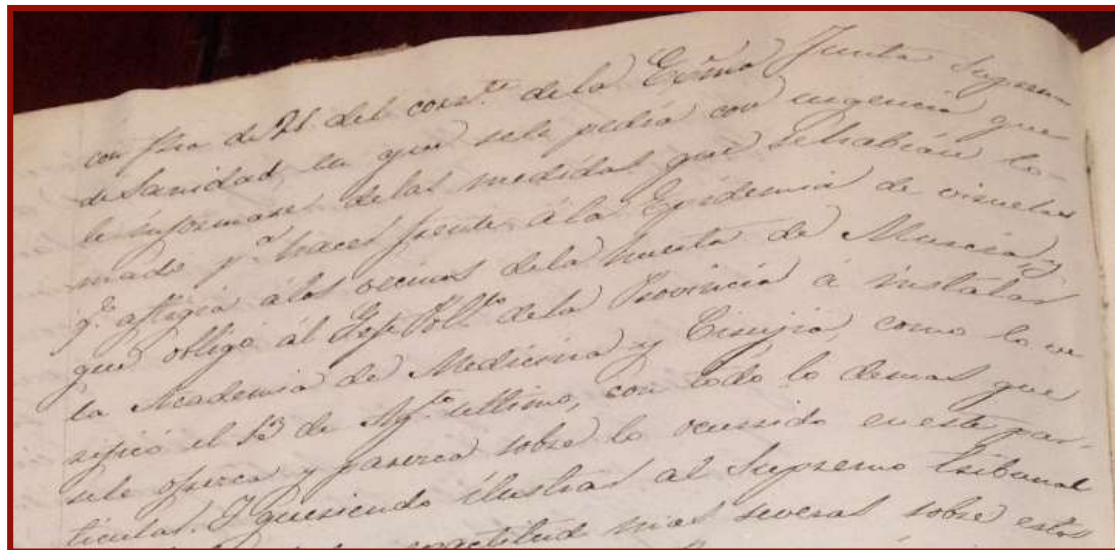 con fha de 21 del corr.te de la Exma Junta Suprema
de Sanidad en que se le pedía con urgencia que
le informase de las medidas que se habían to-
mado p.a hacer frente á la Epidemia de viruelas
q.e afligia á los vecinos de la huerta de Murcia, y
que obligó al Gefe Poll.co de la Provincia á instalar
la Academia de Medicina y Cirujia, como lo ve
rificó el 13 de Ag.to ultimo, con todo lo demas que
se le ofrezca y parezca sobre lo ocurrido en este par-
ticular. I queriendo ilustrar al Supremo tribunal
exactitud mas severas sobre estos